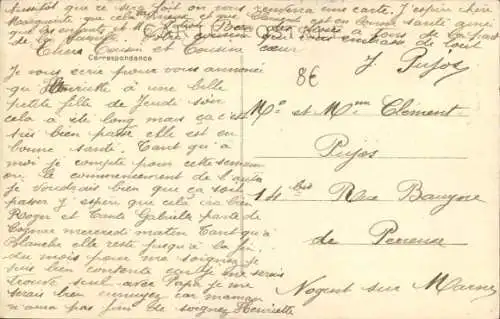 aussitôt que ce sera fait on vous renverra une carte. J'espère chère
Marguerite que cela
que les enfants et
de tout
cœur
J. Pujos
Chers Cousin et Cousine
Correspondance
8€
Je vous écris pour vous annoncé
qu'Henriette à une belle
petite fille de Jeudi soir
cela a été long mais ça c'est
très bien passé elle est en
bonne santé. Tant qu'à
moi je compte pour cette semaine
ou le commencement de l'autre
je voudrais bien que ça soit
passer j'espère que cela ira bien
Roger et Tante Gabielle parte de
Cognac mercredi matin Tant qu'à
Blanche elle reste jusqu'à la fin
du mois pour me soigner je
suis bien contente car je me serais
trouvé seul avec Papa je me
serais bien ennuyez car maman
n'aura pas fini de soigner Henriette
Mr et Mme Clément-
Pujos
14 bis Rue
de
Nogent sur Marne